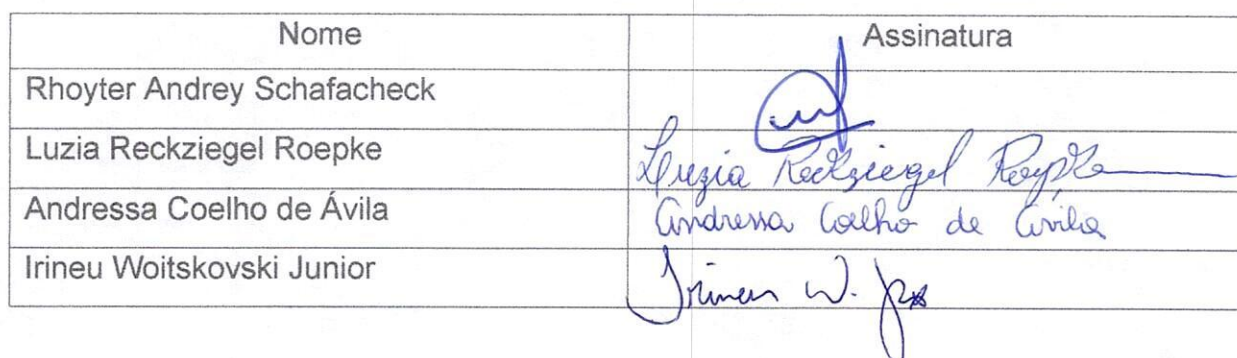 Nome Assinatura
Rhoyter Andrey Schafacheck
Luzia Reckziegel Roepke Luzia Reckziegel Roepke
Andressa Coelho de Ávila Andressa Coelho de Ávila
Irineu Woitskovski Junior Irineu W. Jr